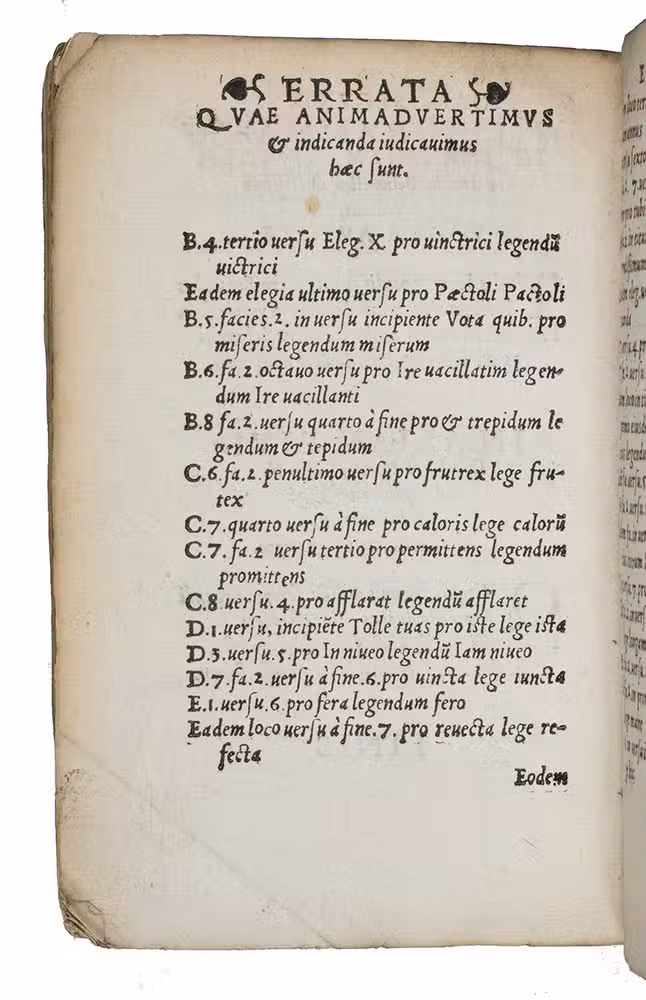 ERRATA
QVAE ANIMADVERTIMVS
& indicanda iudicauimus
hæc ſunt.
B.4.tertio uerſu Eleg. X pro uinctrici legendū
uictrici
Eadem elegia ultimo uerſu pro Pæctoli Pactoli
B.5.facies.2. in uerſu incipiente Vota quib. pro
miſeris legendum miſerum
B.6.fa.2.octauo uerſu pro Ire uacillatim legen-
dum Ire uacillanti
B.8 fa.2.uerſu quarto à fine pro & trepidum le
gendum & tepidum
C.6.fa.2.penultimo uerſu pro frutrex lege fru-
tex
C.7.quarto uerſu à fine pro caloris lege calorū
C.7.fa.2 uerſu tertio pro permittens legendum
promittens
C.8.uerſu.4.pro afflarat legendū afflaret
D.1.uerſu, incipiēte Tolle tuas pro iſte lege iſta
D.3.uerſu.5.pro In niueo legendū Iam niueo
D.7.fa.2.uerſu à fine.6.pro uincta lege iuncta
E.1.uerſu.6.pro fera legendum fero
Eadem loco uerſu à fine.7. pro reuecta lege re-
fecta
Eodem